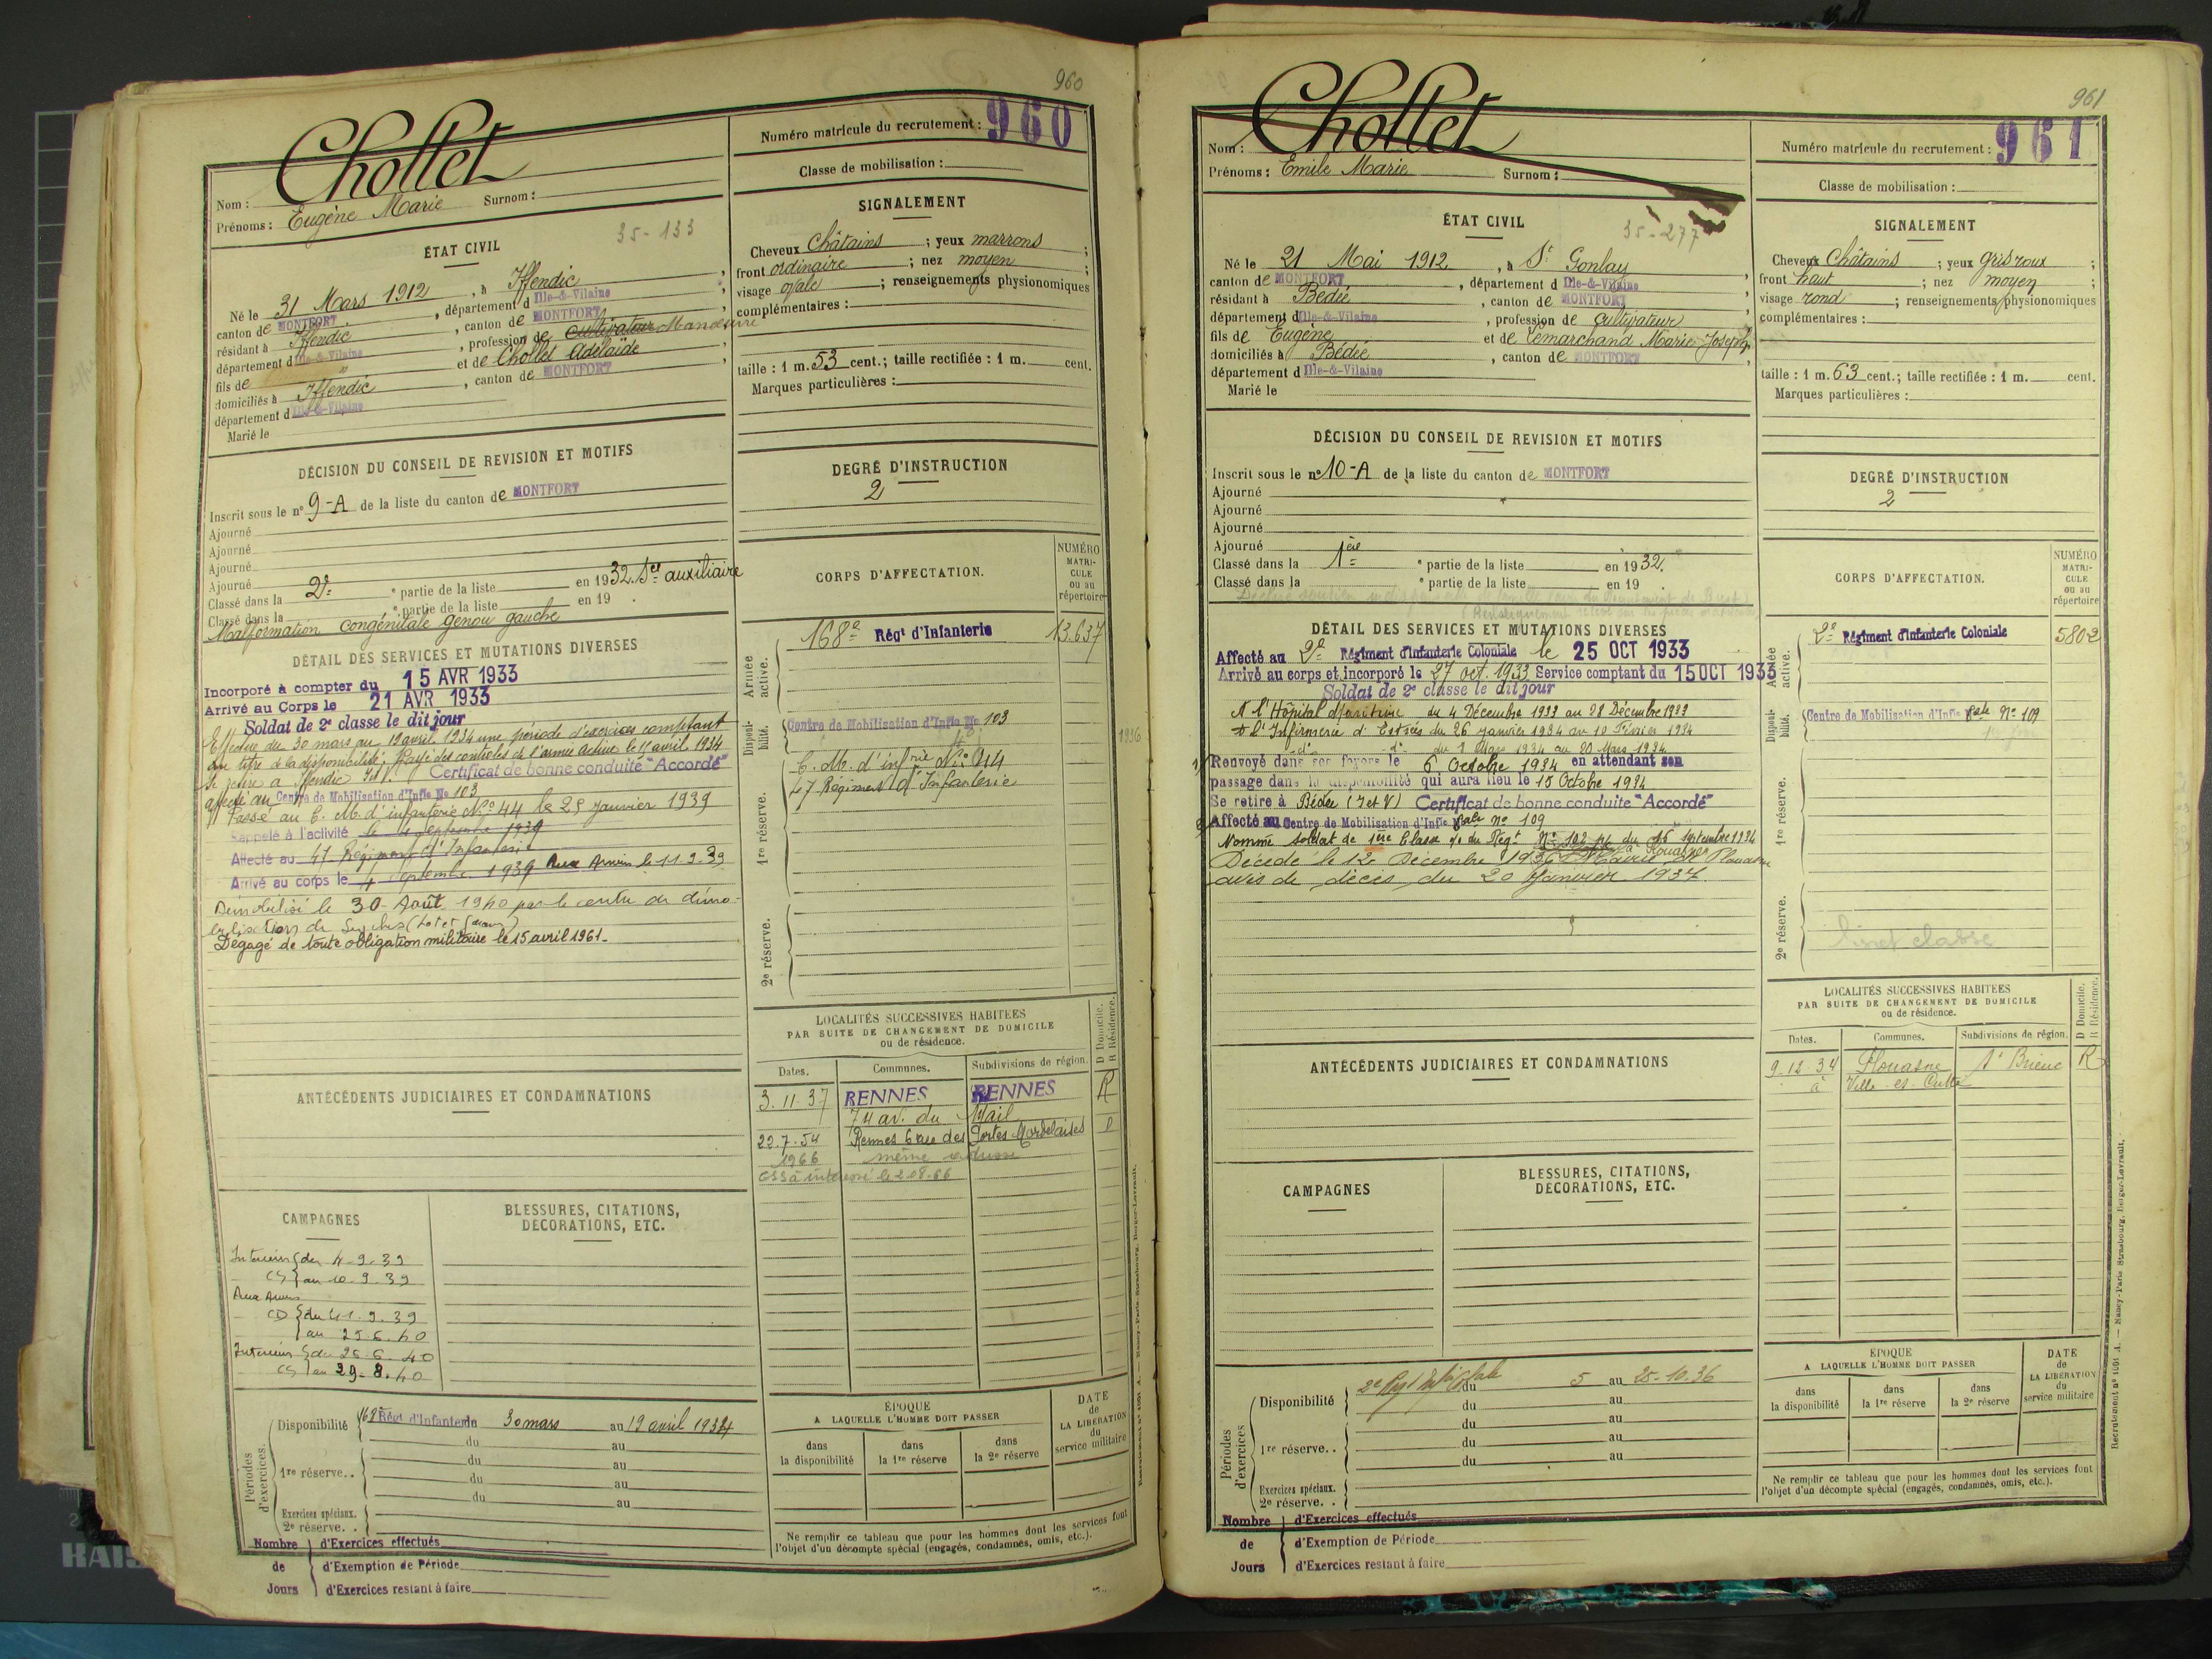 960
Chollet
Nom :
Prénoms : Eugène Marie Surnom :
35-133
ÉTAT CIVIL
Né le 31 Mars 1912, à Iffendic
canton de MONTFORT, département d Ille-&-Vilaine
résidant à Iffendic, canton de MONTFORT
département d Ille-&-Vilaine, profession de cultivateur Manœuvre
fils de " et de Chollet Adélaïde
domiciliés à Iffendic, canton de MONTFORT
département d Ille-&-Vilaine
Marié le
DÉCISION DU CONSEIL DE REVISION ET MOTIFS
Inscrit sous le n° 9-A de la liste du canton de MONTFORT
Ajourné
Ajourné
Ajourné
Ajourné
Classé dans la 2e partie de la liste en 1932. Sce auxiliaire
Classé dans la * partie de la liste en 19 .
Malformation congénitale genou gauche
DÉTAIL DES SERVICES ET MUTATIONS DIVERSES
Incorporé à compter du 15 AVR 1933
Arrivé au Corps le 21 AVR 1933
Soldat de 2e classe le dit jour
Effectue du 30 mars au 19 avril 1934 une période d'exercices comptant
au titre de la disponibilité; Rayé des contrôles de l'armée active le 15 avril 1934
Se retire à Iffendic I et V. Certificat de bonne conduite "Accordé"
affecté au Centre de Mobilisation d'Infie No 103
Passé au C. M. d'infanterie No 44 le 25 Janvier 1939
Rappelé à l'activité le 4 septembre 1939
Affecté au 47 Régiment d'Infanterie
Arrivé au corps le 4 Septembre 1939 Aux Armées le 11.9.39
Démobilisé le 30 Août 1940 par le centre de démo-
bilisation de
Dégagé de toute obligation militaire le 15 avril 1961-
ANTÉCÉDENTS JUDICIAIRES ET CONDAMNATIONS
CAMPAGNES
Intérieur du 4-9-39
CS au 10-9-39
Aux Armées
CD du 11.9.39
au 25.6.40
Intérieur du 26.6.40
CS au 29-8.40
BLESSURES, CITATIONS,
DÉCORATIONS, ETC.
Périodes d'exercices
Disponibilité 168e Régt d'Infanterie du 30 mars au 19 avril 1934
du au
du au
1re réserve.. du au
du au
Exercices spéciaux.
2e réserve. .
Nombre d'Exercices effectués
de d'Exemption de Période
Jours d'Exercices restant à faire
Numéro matricule du recrutement : 960
Classe de mobilisation :
SIGNALEMENT
Cheveux Châtains ; yeux marrons ;
front ordinaire ; nez moyen ;
visage ovale ; renseignements physionomiques
complémentaires :
taille : 1 m. 53 cent.; taille rectifiée : 1 m. cent.
Marques particulières :
DEGRÉ D'INSTRUCTION
2
CORPS D'AFFECTATION.
NUMÉRO
MATRI-
CULE
ou au
répertoire
Armée active.
168e Régt d'Infanterie 13.637
Disponibilité.
Centre de Mobilisation d'Infie No 103
1936
C. M. d'infrie No 44
47 Régiment d'Infanterie
1re réserve.
2e réserve.
LOCALITÉS SUCCESSIVES HABITÉES
PAR SUITE DE CHANGEMENT DE DOMICILE
ou de résidence.
D Domicile.
R Résidence.
Dates. Communes. Subdivisions de région.
3.11.37 RENNES RENNES R
74 av. du Mail
22.7.54 Rennes 6 rue des Portes Mordelaises D
1966 même adresse
ÉPOQUE
A LAQUELLE L'HOMME DOIT PASSER
dans la disponibilité
dans la 1re réserve
dans la 2e réserve
DATE
de
LA LIBÉRATION
du
service militaire
Ne remplir ce tableau que pour les hommes dont les services font
l'objet d'un décompte spécial (engagés, condamnés, omis, etc.).
961
Chollet
Nom :
Prénoms : Emile Marie Surnom :
35-277
ÉTAT CIVIL
Né le 21 Mai 1912, à St Gonlay
canton de MONTFORT, département d Ille-&-Vilaine
résidant à Bédée, canton de MONTFORT
département d Ille-&-Vilaine, profession de Cultivateur
fils de Eugène et de Lemarchand Marie-Joseph
domiciliés à Bédée, canton de MONTFORT
département d Ille-&-Vilaine
Marié le
DÉCISION DU CONSEIL DE REVISION ET MOTIFS
Inscrit sous le n° 10-A de la liste du canton de MONTFORT
Ajourné
Ajourné
Ajourné
Ajourné
Classé dans la 1ère * partie de la liste en 1932.
Classé dans la * partie de la liste en 19 .
DÉTAIL DES SERVICES ET MUTATIONS DIVERSES
Affecté au 2e Régiment d'Infanterie Coloniale le 25 OCT 1933
Arrivé au corps et incorporé le 27 oct. 1933 Service comptant du 15 OCT 1933
Soldat de 2e classe le dit jour
A l'Hôpital Maritime du 4 Décembre 1933 au 28 Décembre 1933
à l'Infirmerie d'Estrées du 26 janvier 1934 au 10 Février 1934
-d°- d°- du 1 Mars 1934 au 20 Mars 1934
Renvoyé dans ses foyers le 6 Octobre 1934 en attendant son
passage dans la disponibilité qui aura lieu le 15 Octobre 1934
Se retire à Bédée (I et V) Certificat de bonne conduite "Accordé"
Affecté au Centre de Mobilisation d'Infie Cale No 109
Nommé soldat de 1ère Classe du Régt No 102 du 16 septembre 1934
Décédé le 12 Décembre 1936 à Plouasne Mairie de Plouasne
avis de décès du 20 Janvier 1937.
ANTÉCÉDENTS JUDICIAIRES ET CONDAMNATIONS
CAMPAGNES
BLESSURES, CITATIONS,
DÉCORATIONS, ETC.
Périodes d'exercices
Disponibilité 2e Régt Infie Cole du 5 au 25-10-36
du au
du au
1re réserve.. du au
du au
Exercices spéciaux.
2e réserve. .
Nombre d'Exercices effectués
de d'Exemption de Période
Jours d'Exercices restant à faire
Numéro matricule du recrutement : 961
Classe de mobilisation :
SIGNALEMENT
Cheveux Châtains ; yeux gris roux ;
front haut ; nez moyen ;
visage rond ; renseignements physionomiques
complémentaires :
taille : 1 m. 63 cent.; taille rectifiée : 1 m. cent.
Marques particulières :
DEGRÉ D'INSTRUCTION
2
CORPS D'AFFECTATION.
NUMÉRO
MATRI-
CULE
ou au
répertoire
Armée active.
2e Régiment d'Infanterie Coloniale 5802
Disponibilité.
Centre de Mobilisation d'Infie Cale No 109
1re réserve.
2e réserve.
livret classe
LOCALITÉS SUCCESSIVES HABITÉES
PAR SUITE DE CHANGEMENT DE DOMICILE
ou de résidence.
D Domicile.
R Résidence.
Dates. Communes. Subdivisions de région.
9.12.34 Plouasne St Brieuc R
à Ville-es-
ÉPOQUE
A LAQUELLE L'HOMME DOIT PASSER
dans la disponibilité
dans la 1re réserve
dans la 2e réserve
DATE
de
LA LIBÉRATION
du
service militaire
Ne remplir ce tableau que pour les hommes dont les services font
l'objet d'un décompte spécial (engagés, condamnés, omis, etc.).
Recrutement n° 1091 A. — Nancy-Paris-Strasbourg, Berger-Levrault.